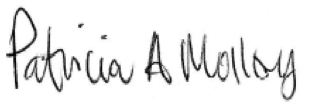 Patricia A Molloy